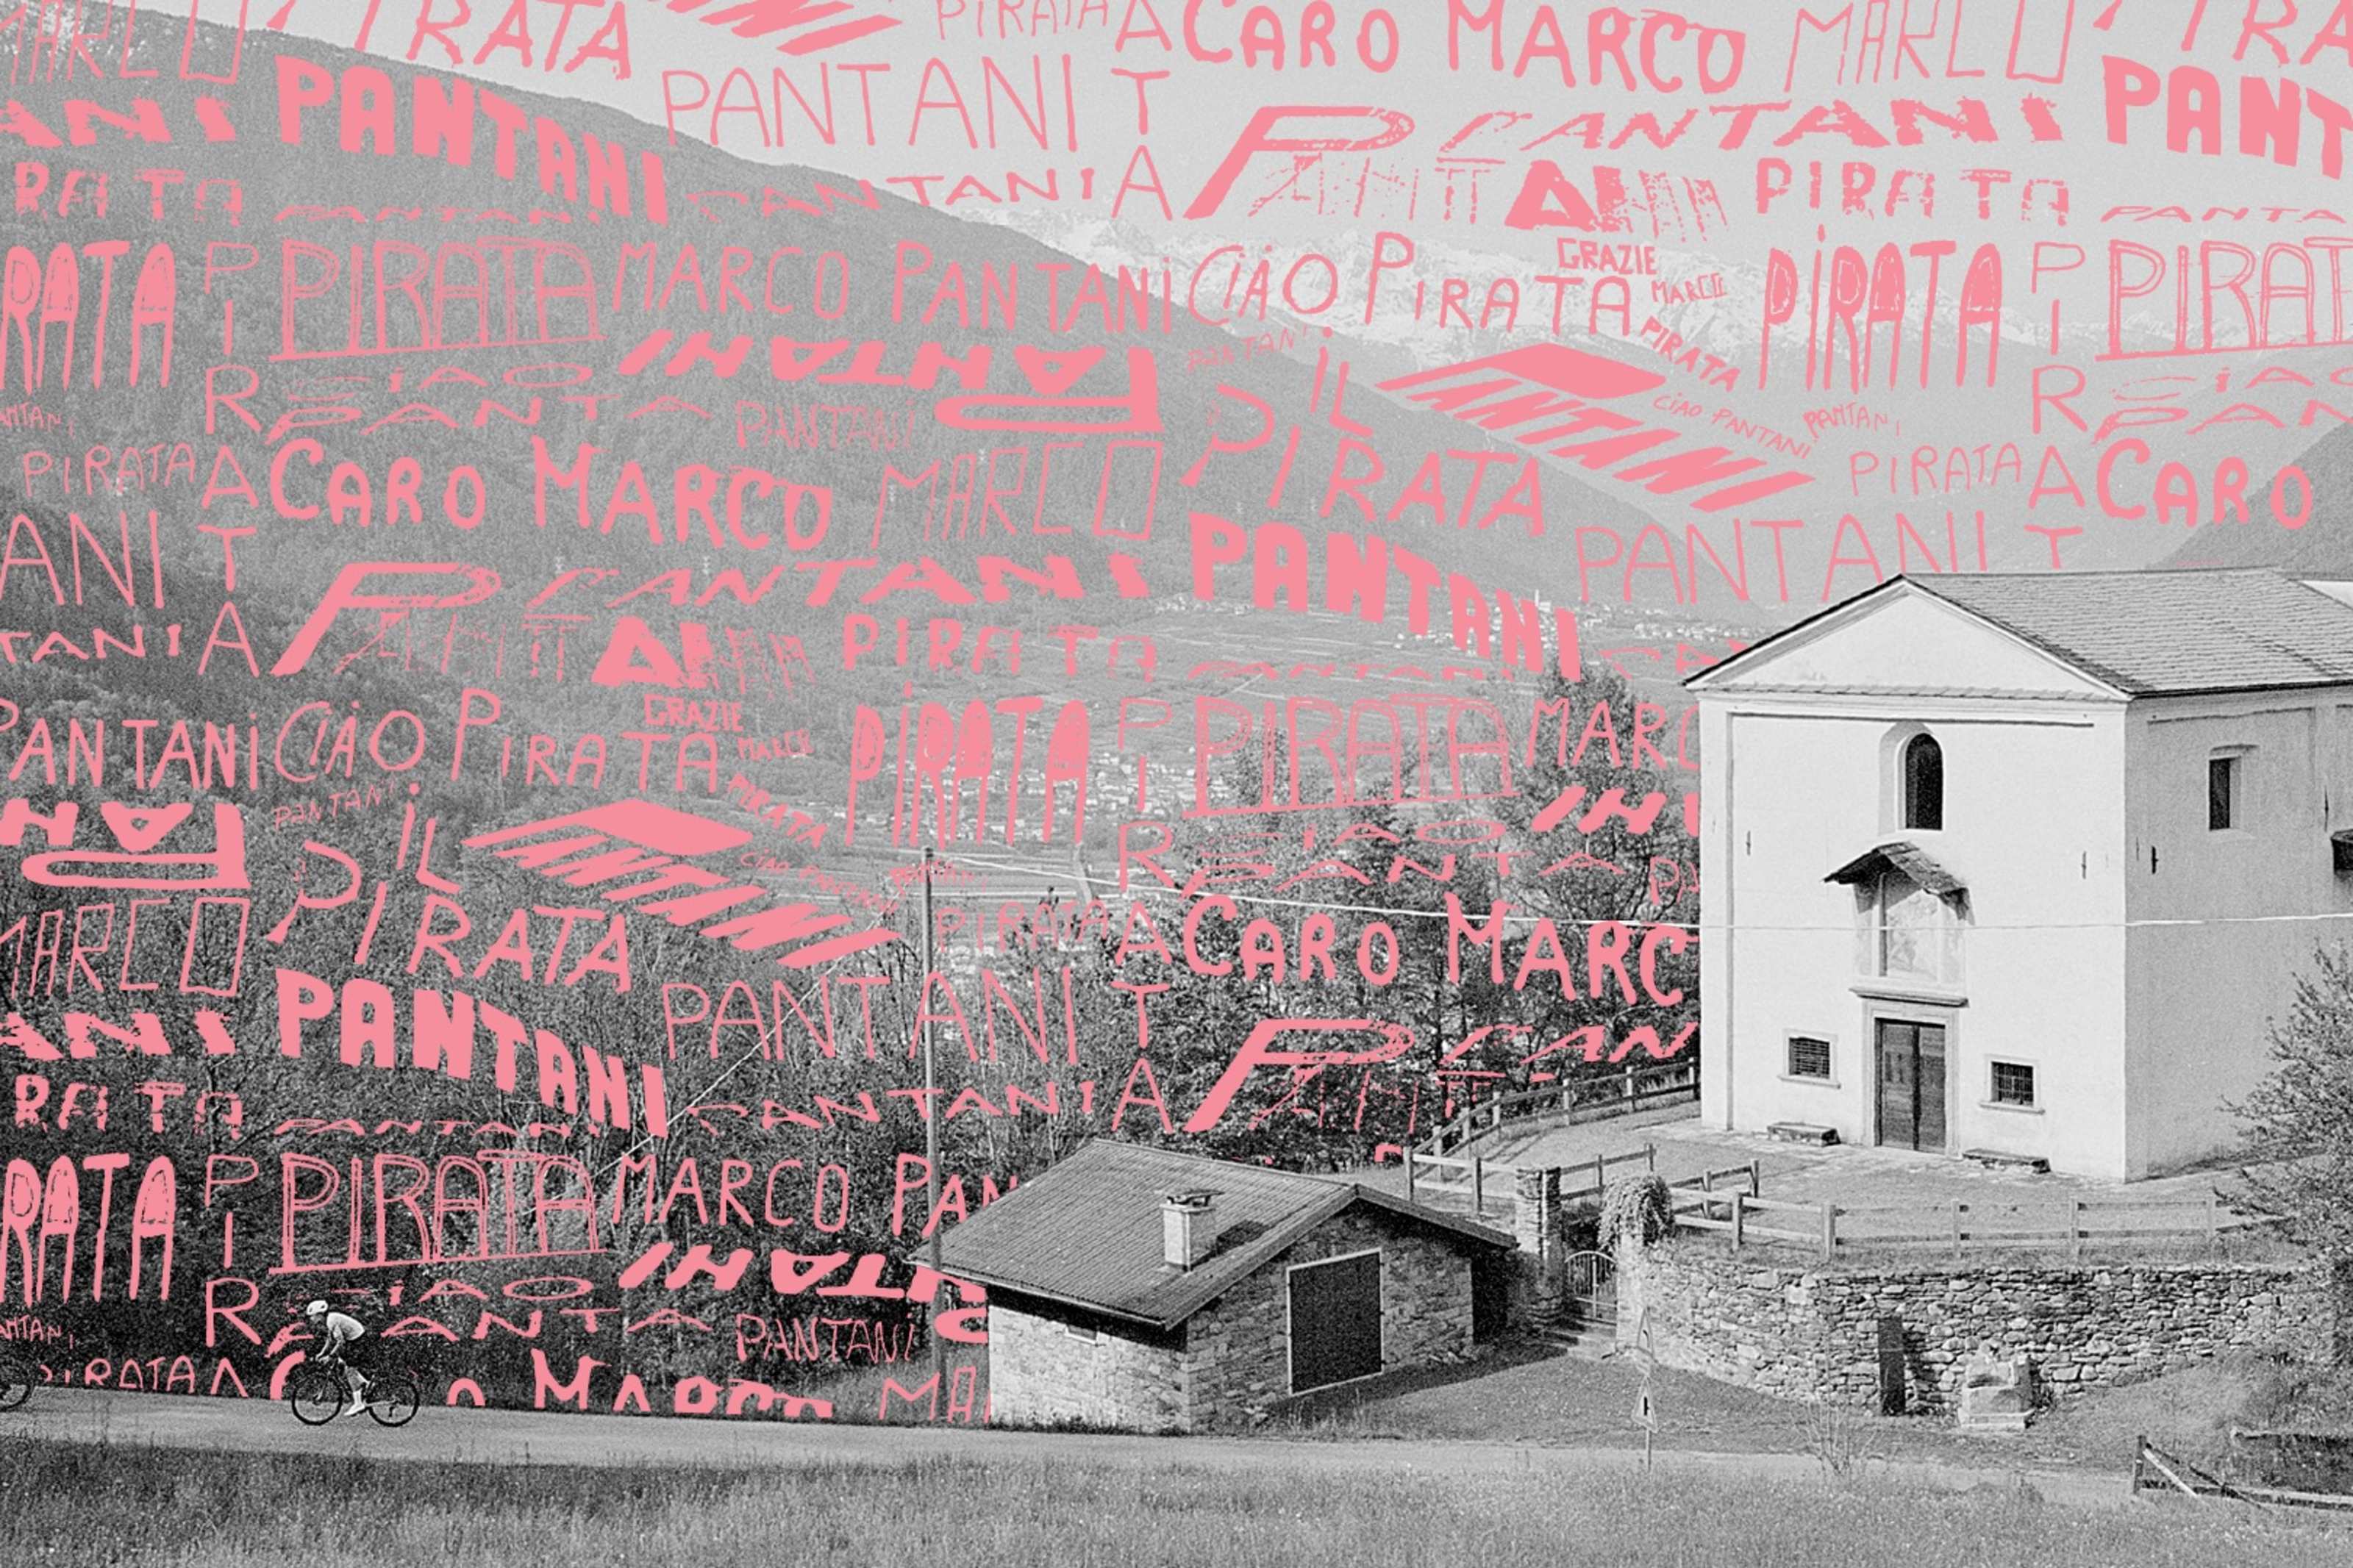 MARCO PIRATA PIRATA CARO MARCO MARCO PIRATA
PANTANI PANTANI PANTANI
PIRATA
PANTANI PANTANI PIRATA PANTANI
PIRATA PIRATA MARCO PANTANI CIAO PIRATA GRAZIE MARCO PIRATA PIRATA
PIRATA
CIAO PANTANI PANTANI IL PIRATA PANTANI
PANTA PANTANI CIAO PANTANI PANTANI
PIRATA CARO MARCO MARCO PIRATA CARO
PANTANI PANTANI PANTANI
PIRATA
PANTANI PIRATA PANTANI
PANTANI CIAO PIRATA GRAZIE MARCO PIRATA PIRATA MARCO
PIRATA
PANTANI IL PIRATA PANTANI CIAO
CIAO PANTANI PANTANI PANTA
MARCO PIRATA CARO MARC
PANTANI PANTANI
PIRATA PANTANI PANTANI
PIRATA PIRATA MARCO PAN
CIAO PANTANI
PANTANI PANTA PANTANI
PIRATA MARCO MAR